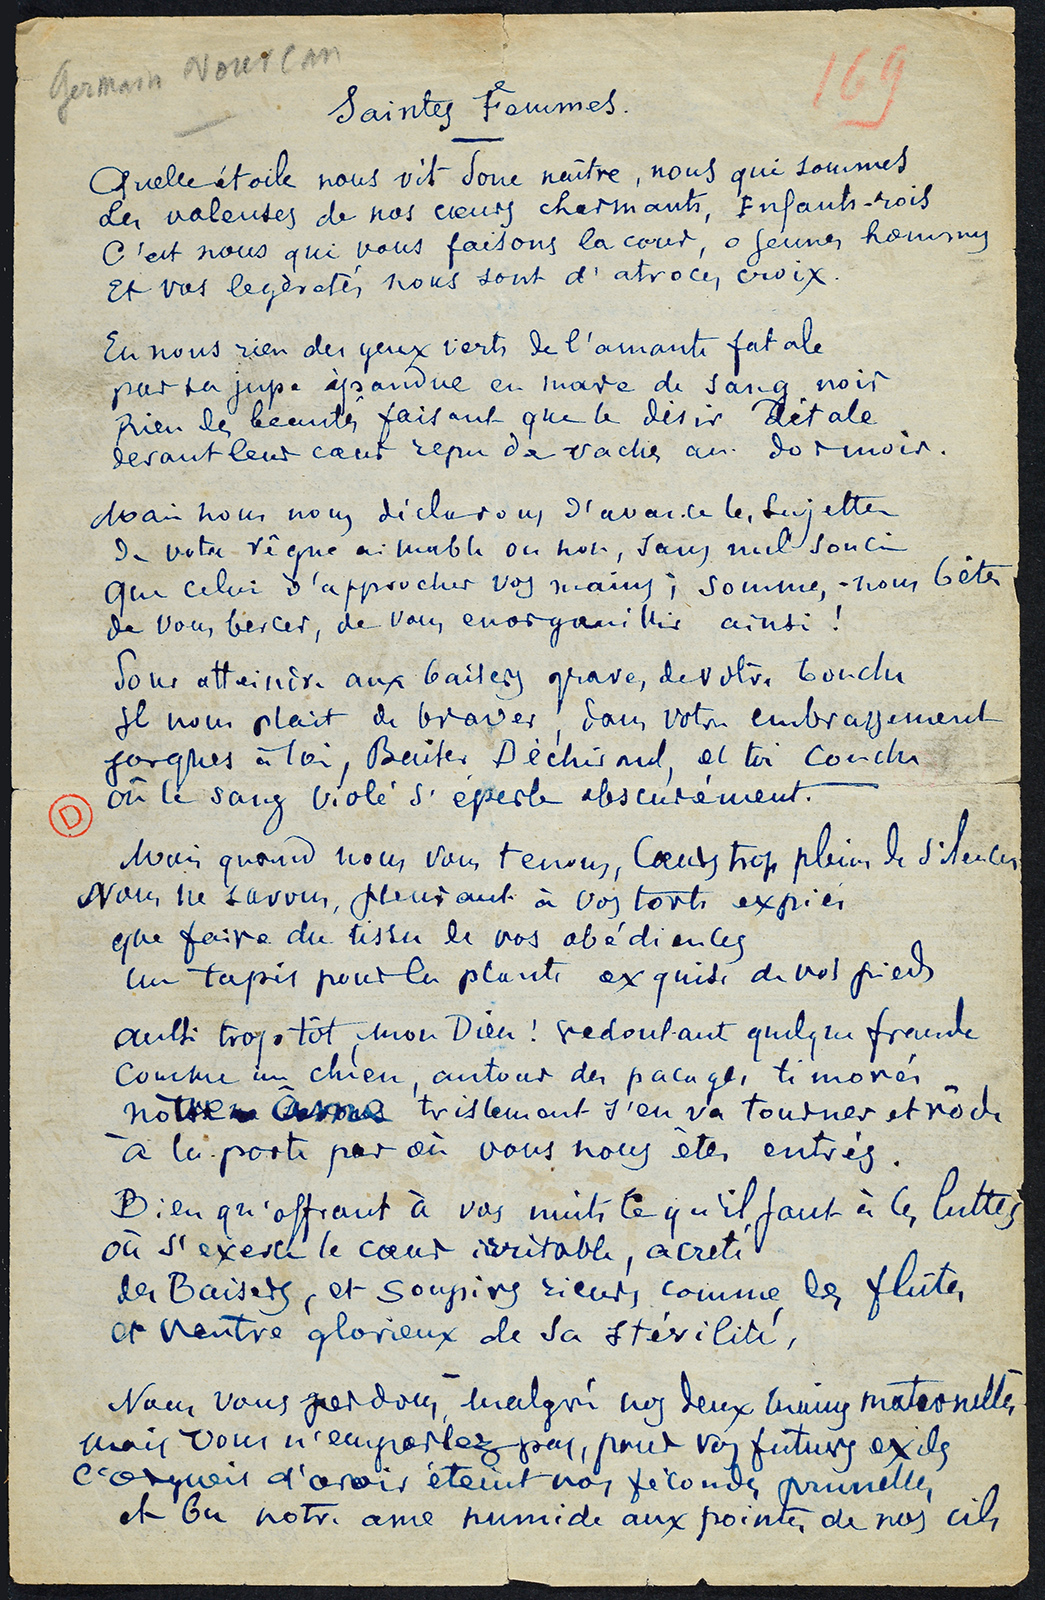 Germain Nouveau
169
Saintes Femmes.
Quelle étoile nous vit donc naître, nous qui sommes
Les voleuses de nos cœurs charmants, Enfants-rois
C'est nous qui vous faisons la cour, o jeunes hommes
Et vos legèretés nous sont d'atroces croix.
En nous rien des yeux verts de l'amante fatale
par sa jupe épandue en mare de sang noir
Rien des beautés faisant que le désir détale
devant leur cœur repu de vaches au dormoir.
Mais nous nous déclarons d'avance les sujettes
De votre règne aimable ou non, sans nul souci
Que celui d'approcher vos mains; sommes-nous bêtes
de vous bercer, de vous enorgueillir ainsi!
Pour atteindre aux baisers graves de votre bouche
Il nous plait de braver, dans votre embrassement
jusques à toi, Baiser Déchirant, et toi Couche
où le sang violé s'éperle obscurément.
D
Mais quand nous vous tenons, Cœurs trop pleins de silences
Nous ne savons, pleurant à vos torts expiés
que faire du tissu de vos obédiences
un tapis pour la plante exquise de vos pieds
aussi trop tôt, mon Dieu! redoutant quelque fraude
Comme un chien, autour des pacages timorés
notre âme tristement s'en va tourner et rôde
à la porte par où vous nous êtes entrés.
Bien qu'offrant à vos nuits ce qu'il faut à ces luttes
où s'exerce le cœur irritable, acreté
des Baisers, et Soupirs rieurs comme les flûtes
et Ventre glorieux de sa stérilité,
Nous vous perdons, malgré nos deux mains maternelles
mais vous n'emportez pas, pour vos futurs exils
L'orgueil d'avoir éteint nos fécondes prunelles
et bu notre ame humide aux pointes de nos cils